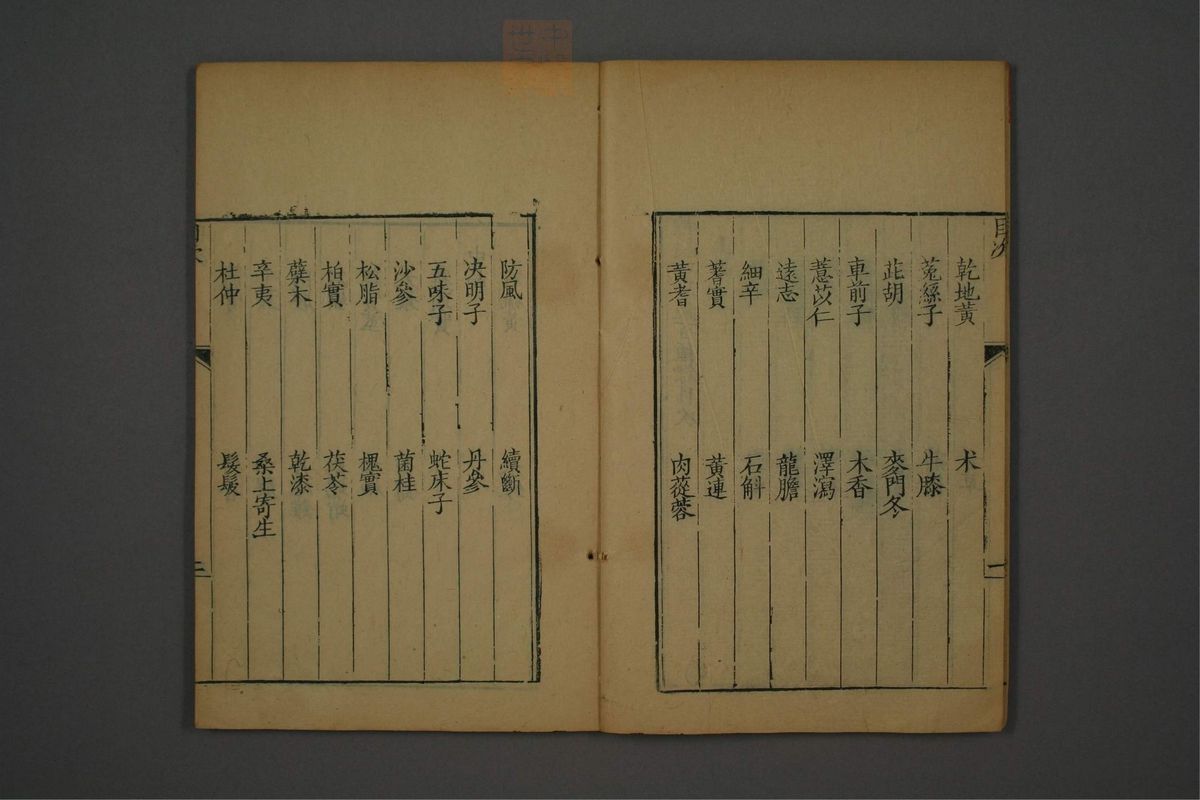 目次
乾地黃 术
菟絲子 牛膝
茈胡 麥門冬
車前子 木香
薏苡仁 澤瀉
遠志 龍膽
細辛 石斛
蓍實 黃連
黃耆 肉蓯蓉
一
防風 續斷
決明子 丹參
五味子 蛇床子
沙參 菌桂
松脂 槐實
柏實 茯苓
蘗木 乾漆
辛夷 桑上寄生
杜仲 髮髲
目次
二